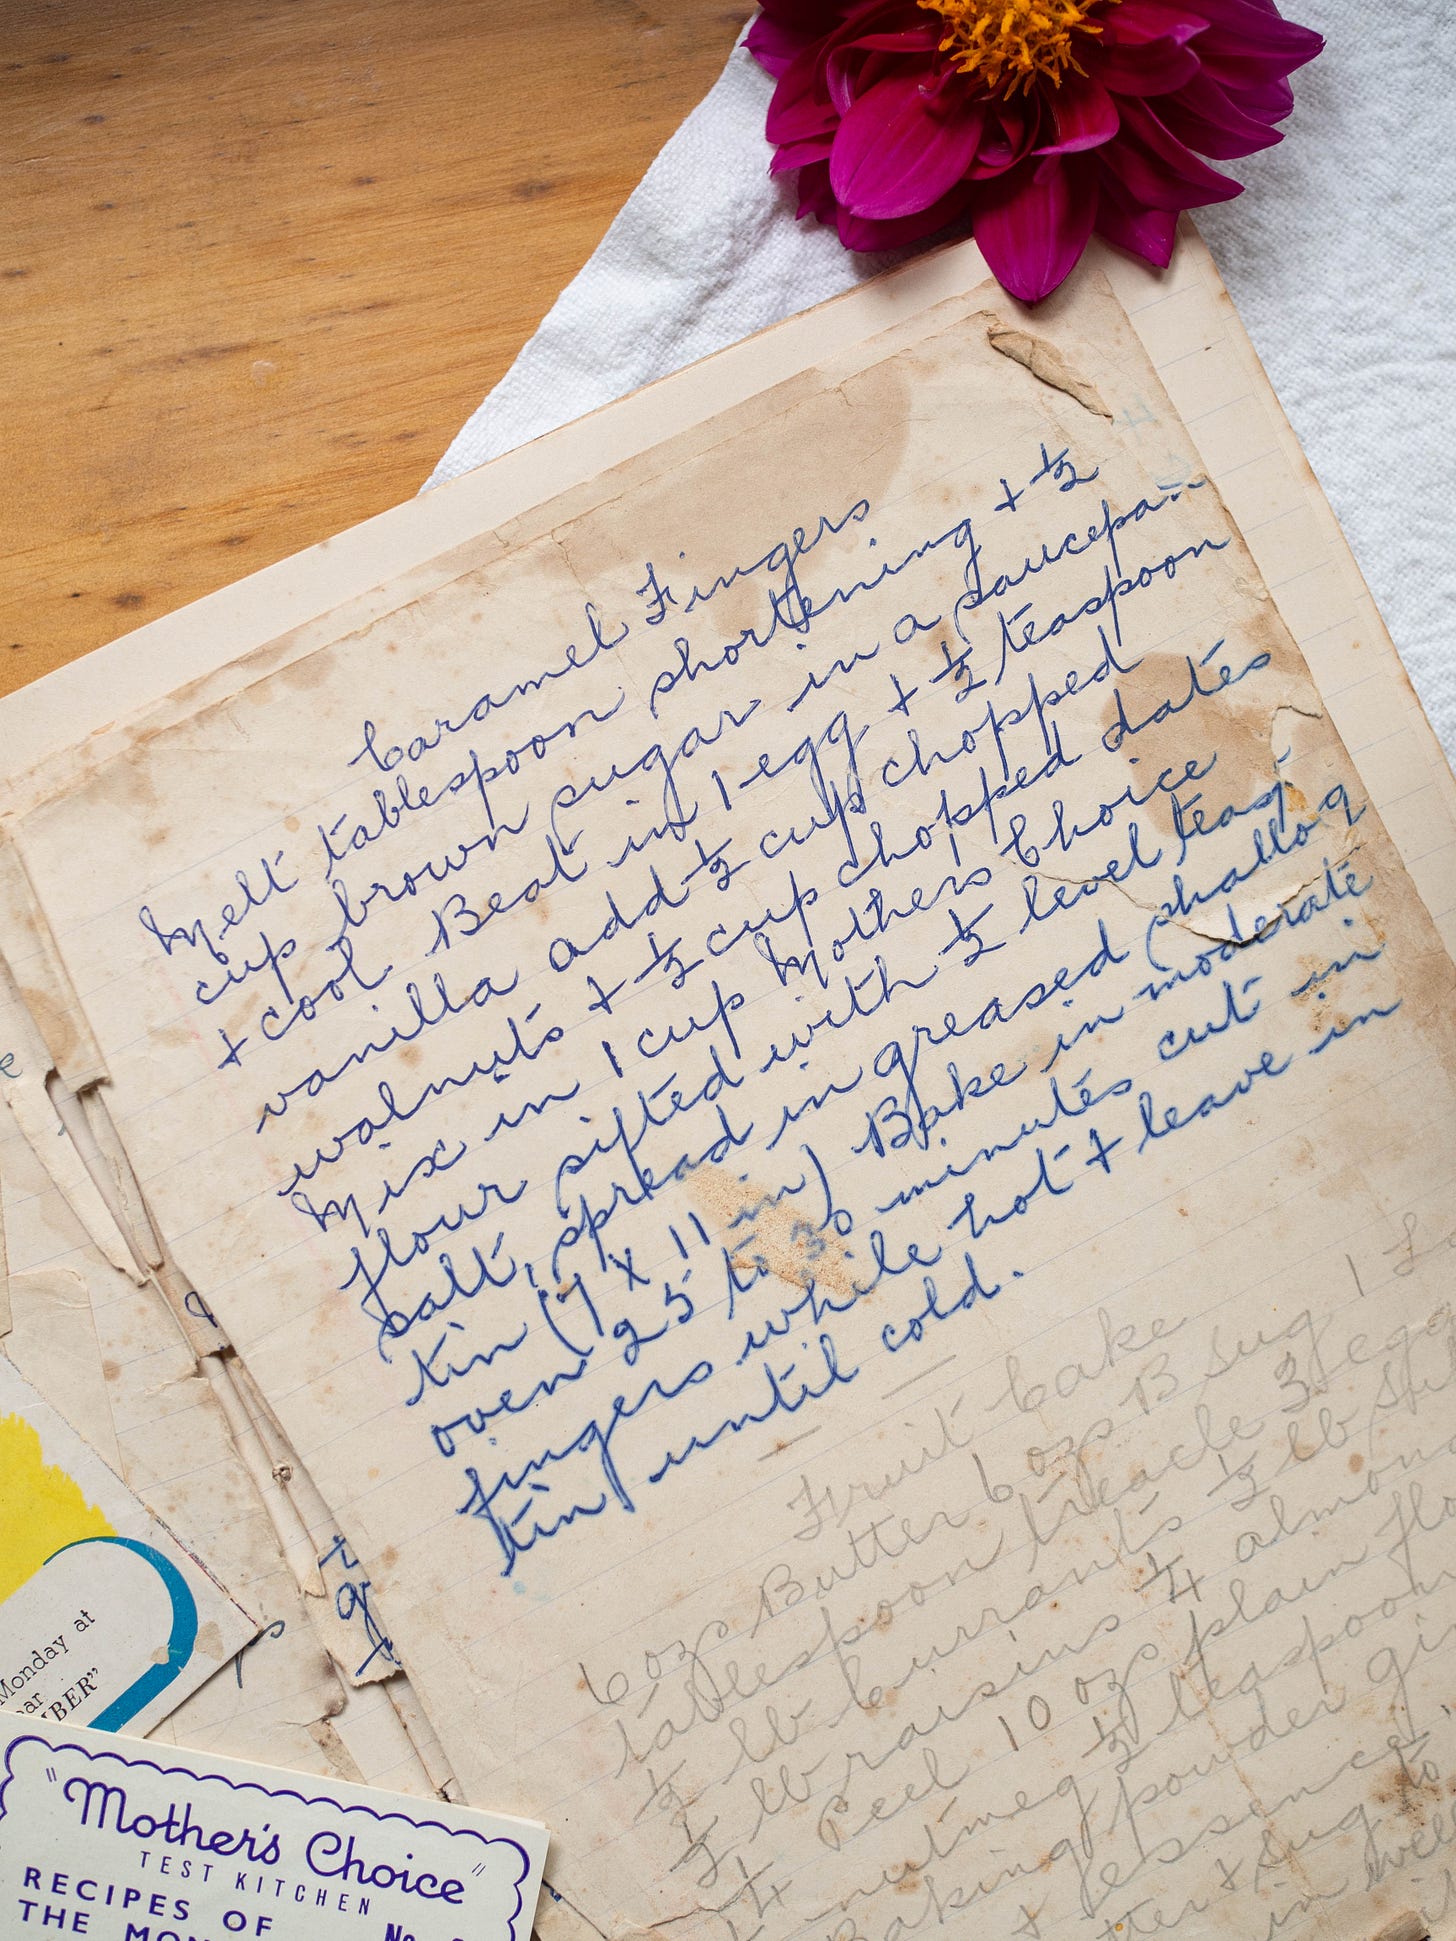 Caramel Fingers
Melt tablespoon shortening + ½
cup brown sugar in a saucepan
+ cool Beat in 1 egg + ½ teaspoon
vanilla add ½ cup chopped
walnuts + ½ cup chopped dates
Mix in 1 cup Mothers Choice
flour sifted with ½ level teasp
salt, spread in greased (shallo
tin (7 x 11 in) Bake in moderate
oven 25 to 30 minutes cut in
fingers while hot + leave in
tin until cold.
Fruit Cake
6 ozs Butter 6 ozs B Sug 1
tablespoon treacle 3 egg
½ lb Currants ½ lb
½ lb raisins ¼ almon
¼ Peel 10 ozs plain flo
nutmeg ½ teaspoon
Baking powder gi
+ essence
ter + sug to
in well
Monday at
ear
BER”
"Mother's Choice"
TEST KITCHEN
RECIPES OF
THE MON
No.